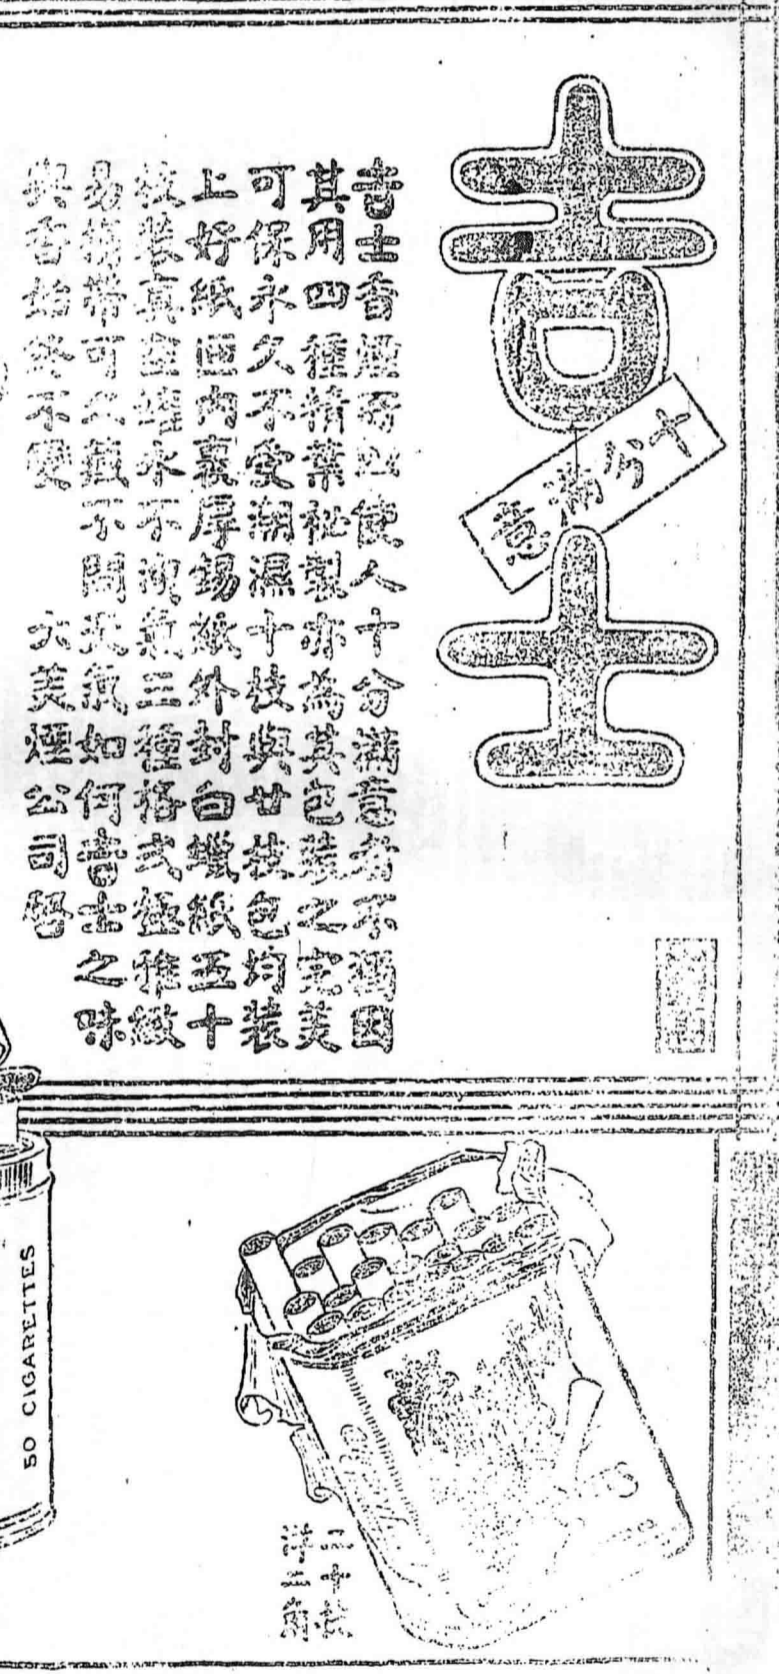 吉士
十分滿意
吉士香煙所以使人十分滿意者不獨因
其用四種精葉秘製亦為其包裝之完美
可保永久不受潮濕十枝與廿枝包均裝
上好紙匣內裹厚錫紙外封白蠟紙五十
枝裝真空罐水不洩氣三種格式極雅緻
易攜帶可久藏不問天氣如何吉士之味
與香始終不變
大美煙公司啓
50 CIGARETTES